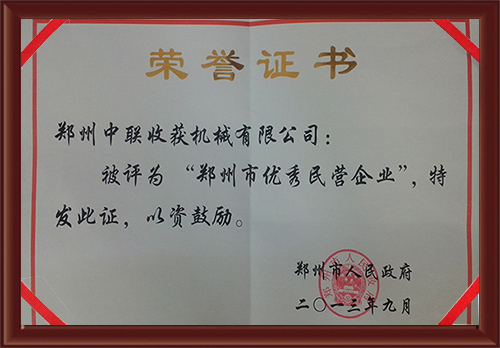 荣誉证书
郑州中联收获机械有限公司：
被评为“郑州市优秀民营企业”，特
发此证，以资鼓励。
郑州市人民政府
二〇一三年九月